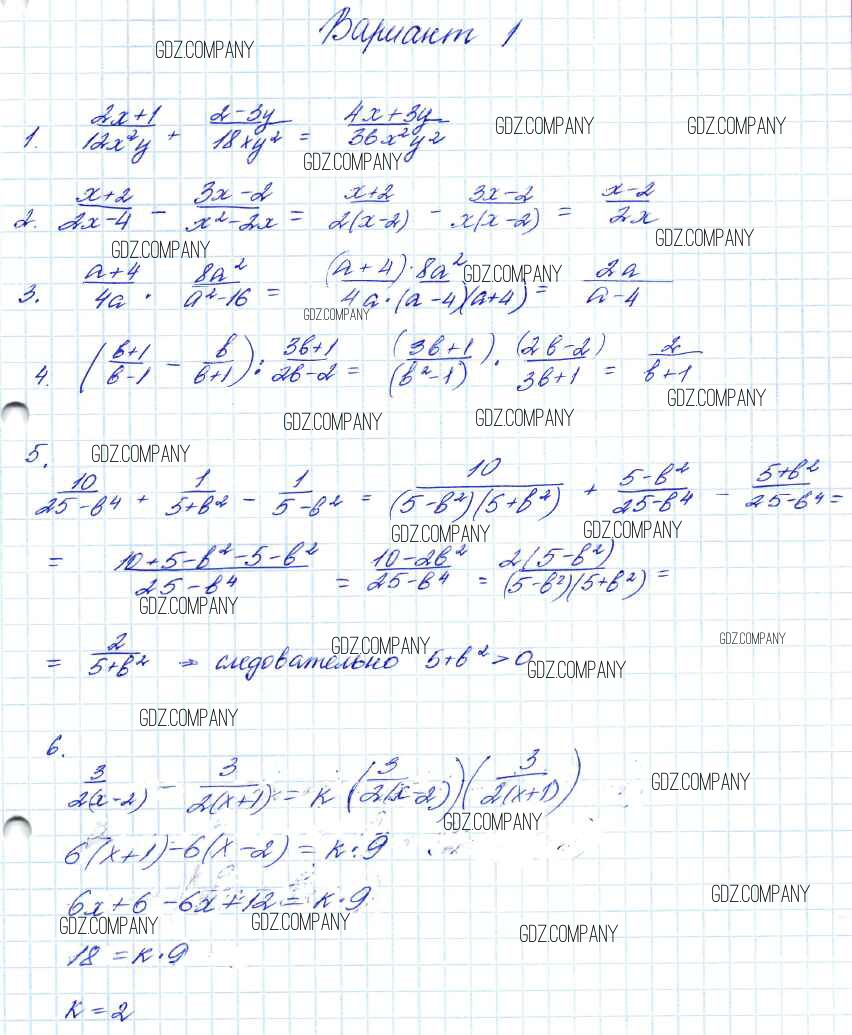 Вариант 1
GDZ.COMPANY
1. (2x+1)/(12x²y) + (2-3y)/(18xy²) = (4x+3y)/(36x²y²)
GDZ.COMPANY GDZ.COMPANY
GDZ.COMPANY
2. (x+2)/(2x-4) - (3x-2)/(x²-2x) = (x+2)/(2(x-2)) - (3x-2)/(x(x-2)) = (x-2)/(2x)
GDZ.COMPANY GDZ.COMPANY
3. (a+4)/(4a) · (8a²)/(a²-16) = ((a+4)·8a²)/(4a·(a-4)(a+4)) = (2a)/(a-4)
GDZ.COMPANY
GDZ.COMPANY
4. ((b+1)/(b-1) - b/(b+1)) : (3b+1)/(2b-2) = ((3b+1)/(b²-1)) · (2b-2)/(3b+1) = 2/(b+1)
GDZ.COMPANY
GDZ.COMPANY GDZ.COMPANY
5.
GDZ.COMPANY
10/(25-b⁴) + 1/(5+b²) - 1/(5-b²) = 10/((5-b²)(5+b²)) + (5-b²)/(25-b⁴) - (5+b²)/(25-b⁴) =
GDZ.COMPANY GDZ.COMPANY
= (10+5-b²-5-b²)/(25-b⁴) = (10-2b²)/(25-b⁴) = (2(5-b²))/((5-b²)(5+b²)) =
GDZ.COMPANY
= 2/(5+b²) ⇒ следовательно 5+b²>0
GDZ.COMPANY GDZ.COMPANY
GDZ.COMPANY
GDZ.COMPANY
6.
3/(2(x-2)) - 3/(2(x+1)) = к (3/(2(x-2)))(3/(2(x+1)))
GDZ.COMPANY
GDZ.COMPANY
6(x+1)-6(x-2) = к·9
6x+6-6x+12 = к·9
GDZ.COMPANY
GDZ.COMPANY GDZ.COMPANY GDZ.COMPANY
18 = к·9
к = 2